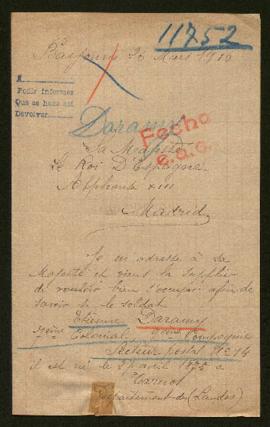 11752
Bayonne 26 Mars 1916
A
Pedir informes
Que se haga así
Devolver
Daramy
Fecho
Sa Majesté
Le Roi D'Espagne
Alphonse XIII
Madrid
Je m adresse à Sa
Majesté et viens la Supplier
de vouloir bien s'occuper afin de
savoir si le soldat
Etienne Daramy
Colonial Compagnie
Secteur postal
il est né le avril a
Département des (Landes)